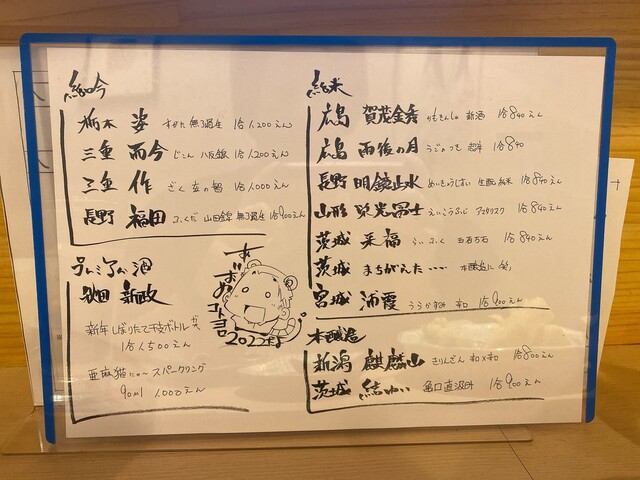 純吟
栃木 姿 すがた 無ろ過生 1合1,200えん
三重 而今 じこん 八反錦 1合1,200えん
三重 作 ざく 玄の智 1合1,000えん
長野 福田 ふくだ 山田錦 無ろ過生 1合900えん
プレミアム酒
秋田 新政
新年しぼりたて干支ボトル
1合1,500えん
亜麻猫 スパークリング
90ml 1,000えん
あけおめ
コトヨロ
2022
純米
広島 賀茂金秀 かもきんしゅう 新酒 1合840えん
広島 雨後の月 うごのつき 1合840
長野 明鏡止水 めいきょうしすい 純米 1合840えん
山形 栄光冨士 えいこうふじ アステリスク 1合840えん
茨城 来福 らいふく 1合840えん
茨城 まちがえた…… 本醸造に
宮城 浦霞 うらかすみ 辛口 1合900えん
本醸造
新潟 麒麟山 きりんざん 1合800えん
茨城 結ゆい 亀口直汲み 1合900えん